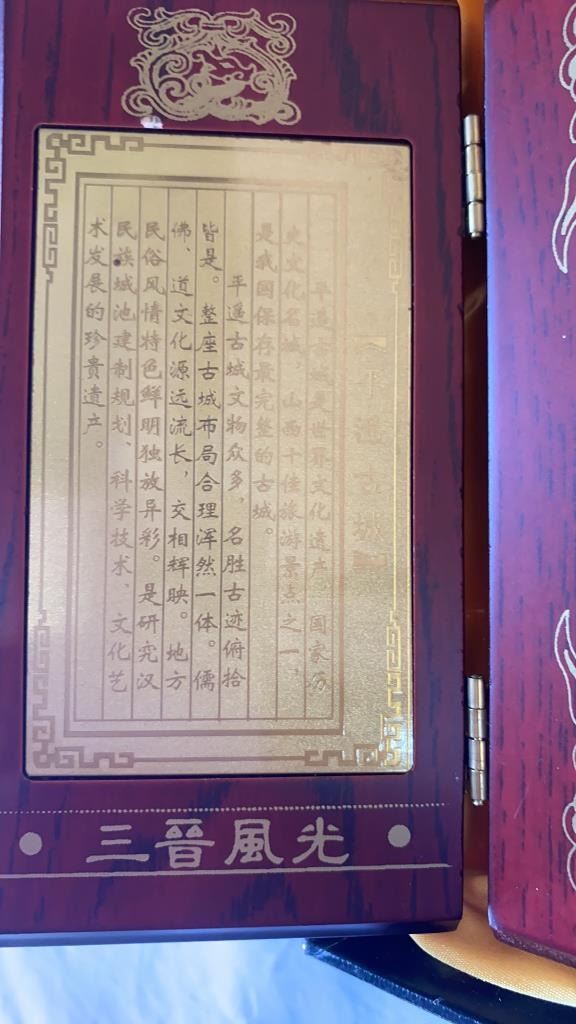 【平遥古城】
平遥古城是世界文化遗产、国家历
史文化名城，山西十佳旅游景点之一，
是我国保存最完整的古城。
平遥古城文物众多，名胜古迹俯拾
皆是。整座古城布局合理浑然一体。儒
佛、道文化源远流长，交相辉映。地方
民俗风情特色鲜明独放异彩。是研究汉
民族城池建制规划、科学技术、文化艺
术发展的珍贵遗产。
三晋風光